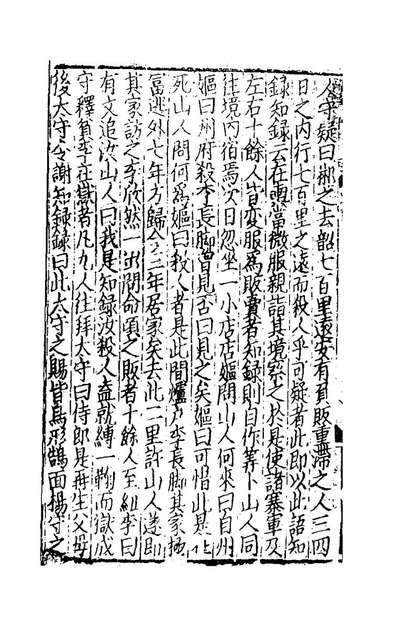 人乎疑曰彬之去韶七百里遠安有負販重滯之人三四
日之内行七百里之遠而殺人乎可疑者此即以此語知
録知録云在雲當微服親詣其境察之於是使諸寨軍及
左右十餘人皆変服為販賣者知録則自作筭卜山人同
往境内宿焉次日忽坐一小店店嫗問山人何來曰自州
嫗曰州府殺李長脚曽見否曰見之矣嫗曰可惜此是
死山人問何為嫗曰殺人者是此間爐戸李長脚其家
富逃外七年方歸今二年居家矣去此二里許山人遂即
其家訪之李欣然一出閒命頃之販者十餘人至組李曰
有文追汝山人曰我是知録汝殺人盍就縛一鞫而獄成
守釋負李在獄者凡九人往拜太守曰侍郎是再生父母
後太守令謝知録録曰此太守之賜皆鳥形鵠面揚守之